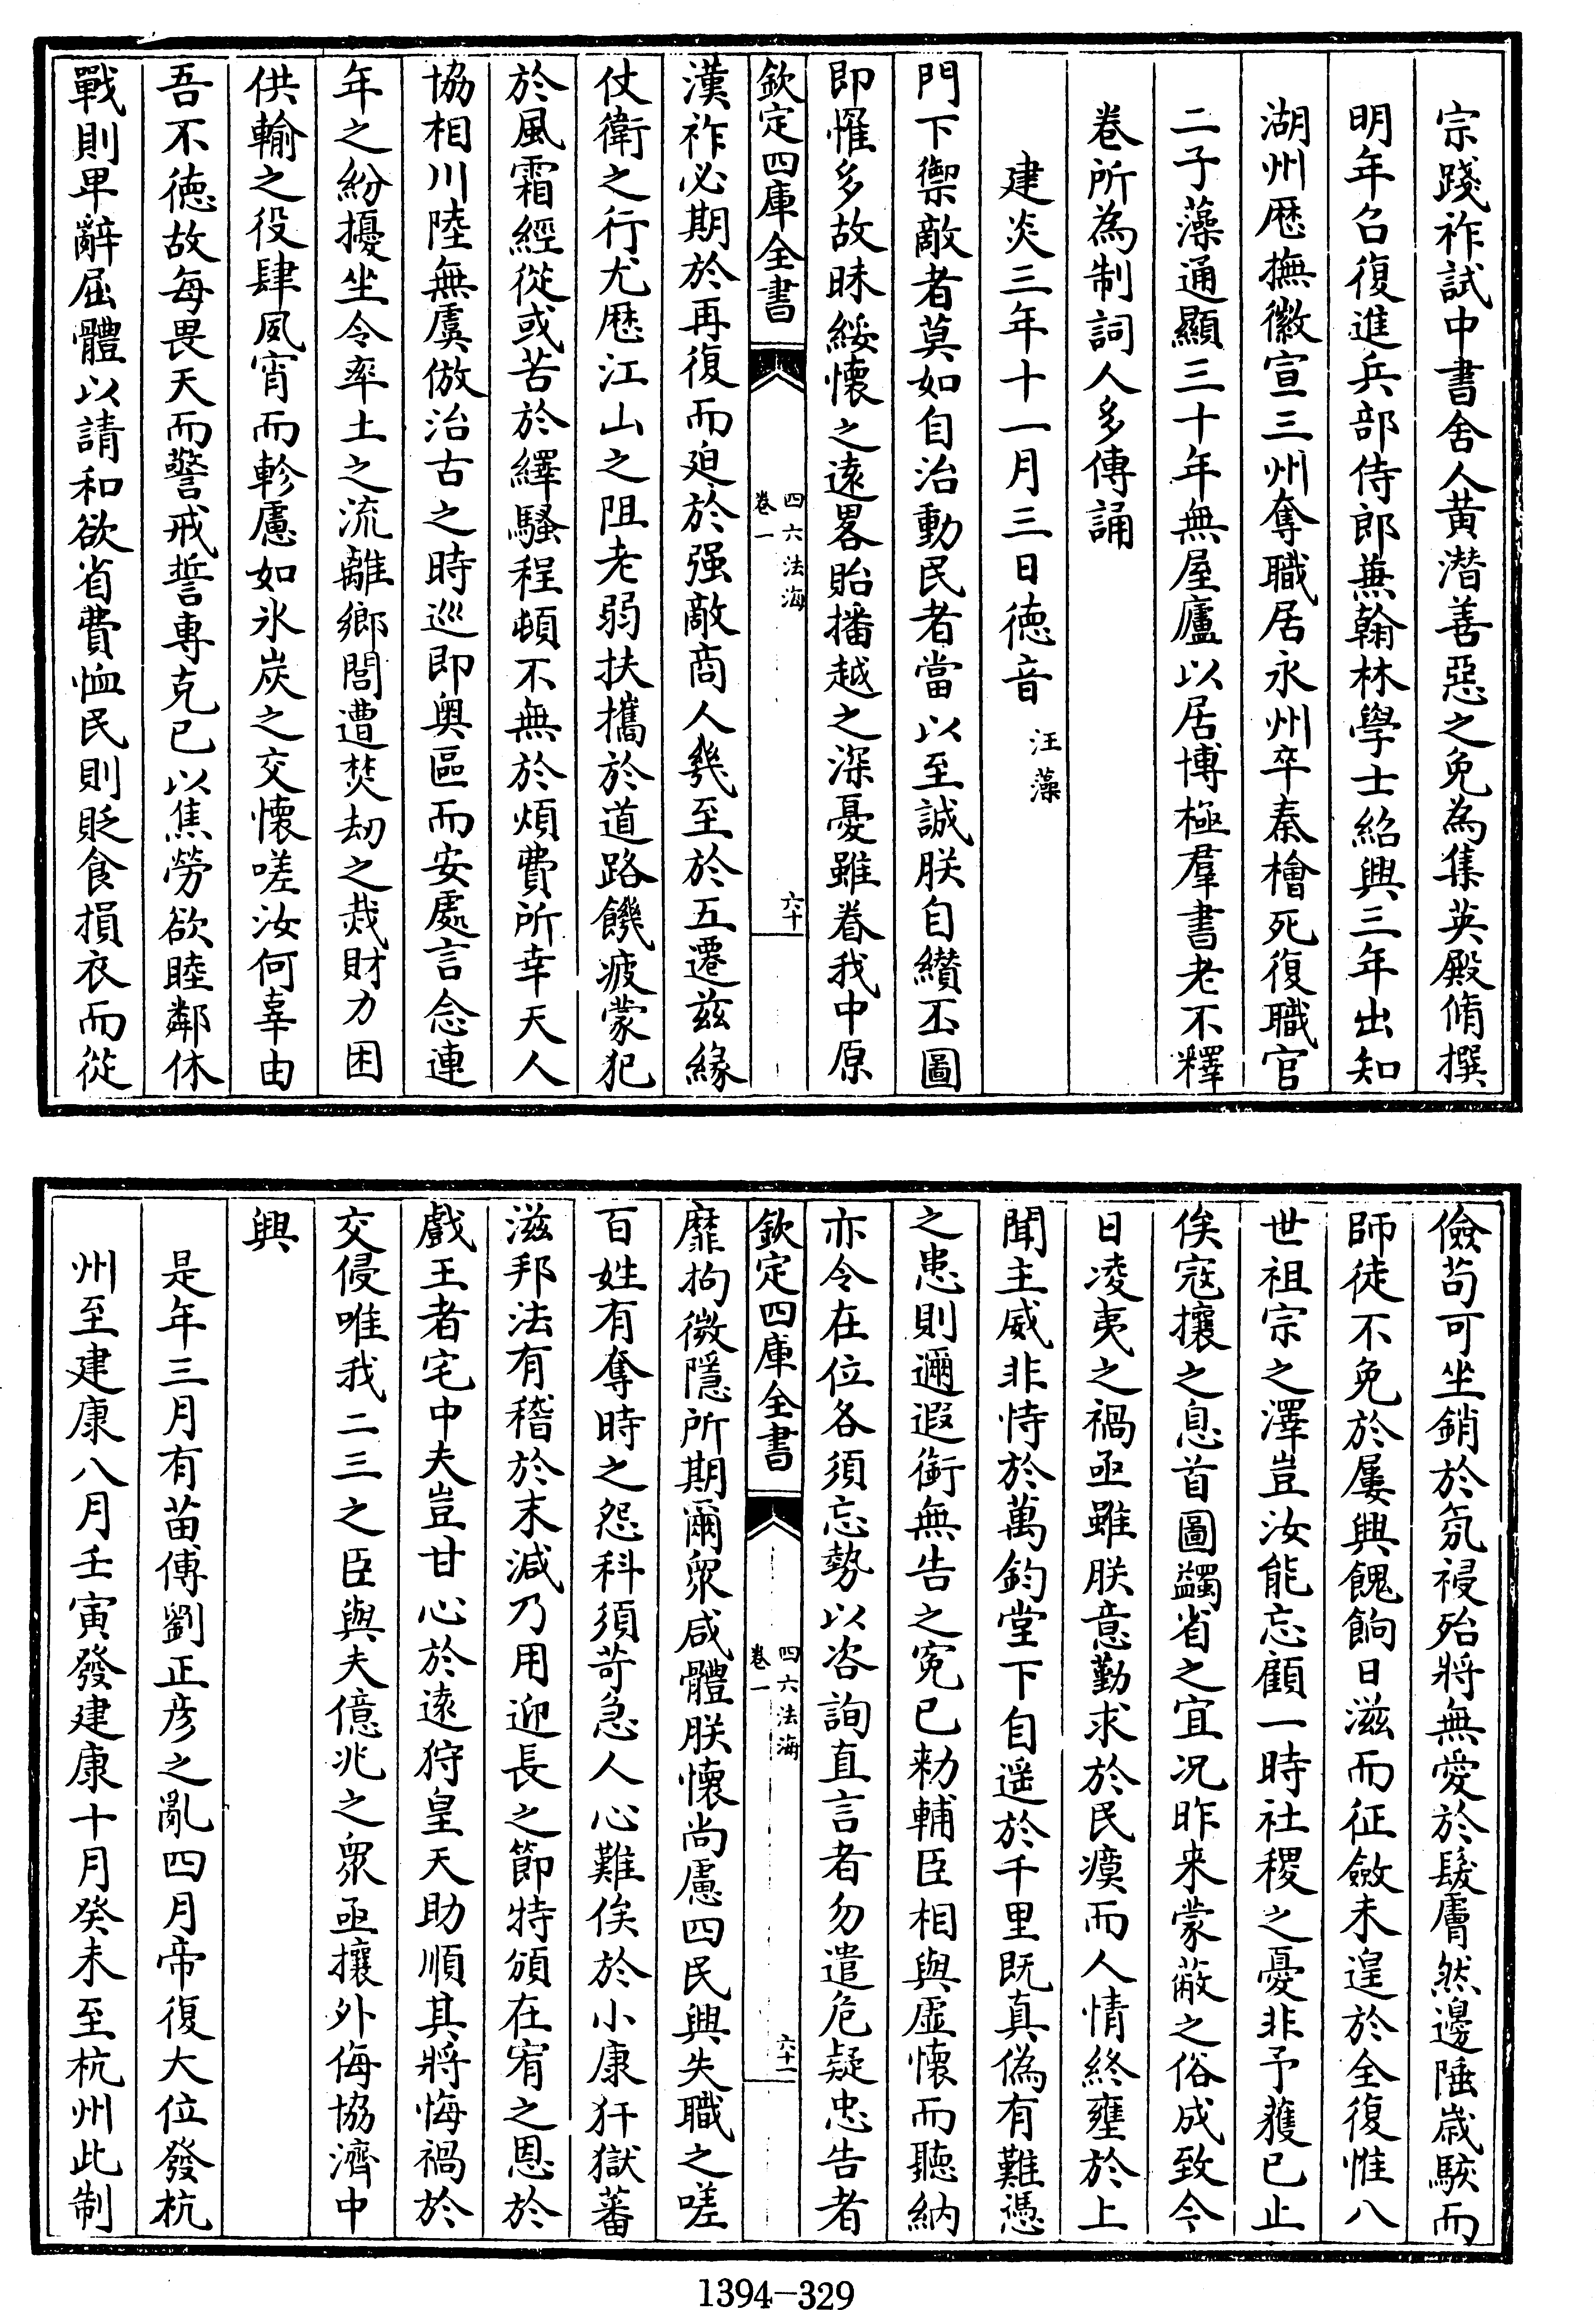 宗踐祚試中書舍人黃潛善惡之免為集英殿脩撰
明年召復進兵部侍郎兼翰林學士紹興三年出知
湖州厯撫徽宣三州奪職居永州卒秦檜死復職官
二子藻通顯三十年無屋廬以居博極羣書老不釋
卷所為制詞人多傳誦
建炎三年十一月三日德音 汪藻
門下禦敵者莫如自治動民者當以至誠朕自纘丕圖
即罹多故昧綏懷之逺畧貽播越之深憂雖眷我中原
欽定四庫全書 四六法海 卷一 六十
漢祚必期於再復而廹於强敵商人幾至於五遷兹緣
仗衛之行尤厯江山之阻老弱扶攜於道路饑疲蒙犯
於風霜經從或苦於繹騷程頓不無於煩費所幸天人
協相川陸無虞倣治古之時巡即奥區而安處言念連
年之紛擾坐令率土之流離鄉閭遭焚劫之烖財力困
供輸之役肆夙宵而軫慮如氷炭之交懷嗟汝何辜由
吾不徳故每畏天而警戒誓專克已以焦勞欲睦鄰休
戰則卑辭屈體以請和欲省費恤民則貶食損衣而從
儉茍可坐銷於氛祲殆將無愛於髮膚然邊陲歳駭而
師徒不免於屢興餽餉日滋而征斂未遑於全復惟八
世祖宗之澤豈汝能忘顧一時社稷之憂非予獲已止
俟寇攘之息首圖蠲省之宜况昨来蒙蔽之俗成致今
日凌夷之禍亟雖朕意勤求於民瘼而人情終壅於上
聞主威非恃於萬鈞堂下自遥於千里既真偽有難憑
之患則邇遐銜無告之寃已勅輔臣相與虛懷而聽納
亦令在位各須忘勢以咨詢直言者勿遣危疑忠告者
欽定四庫全書 四六法海 卷一 六十一
靡拘微隱所期爾衆咸體朕懷尚慮四民興失職之嗟
百姓有奪時之怨科須苛急人心難俟於小康犴獄蕃
滋邦法有稽於末減乃用迎長之節特頒在宥之恩於
戲王者宅中夫豈甘心於逺狩皇天助順其將悔禍於
交侵唯我二三之臣與夫億兆之衆亟攘外侮協濟中
興
是年三月有苗傅劉正彦之亂四月帝復大位發杭
州至建康八月壬寅發建康十月癸未至杭州此制
1394-329